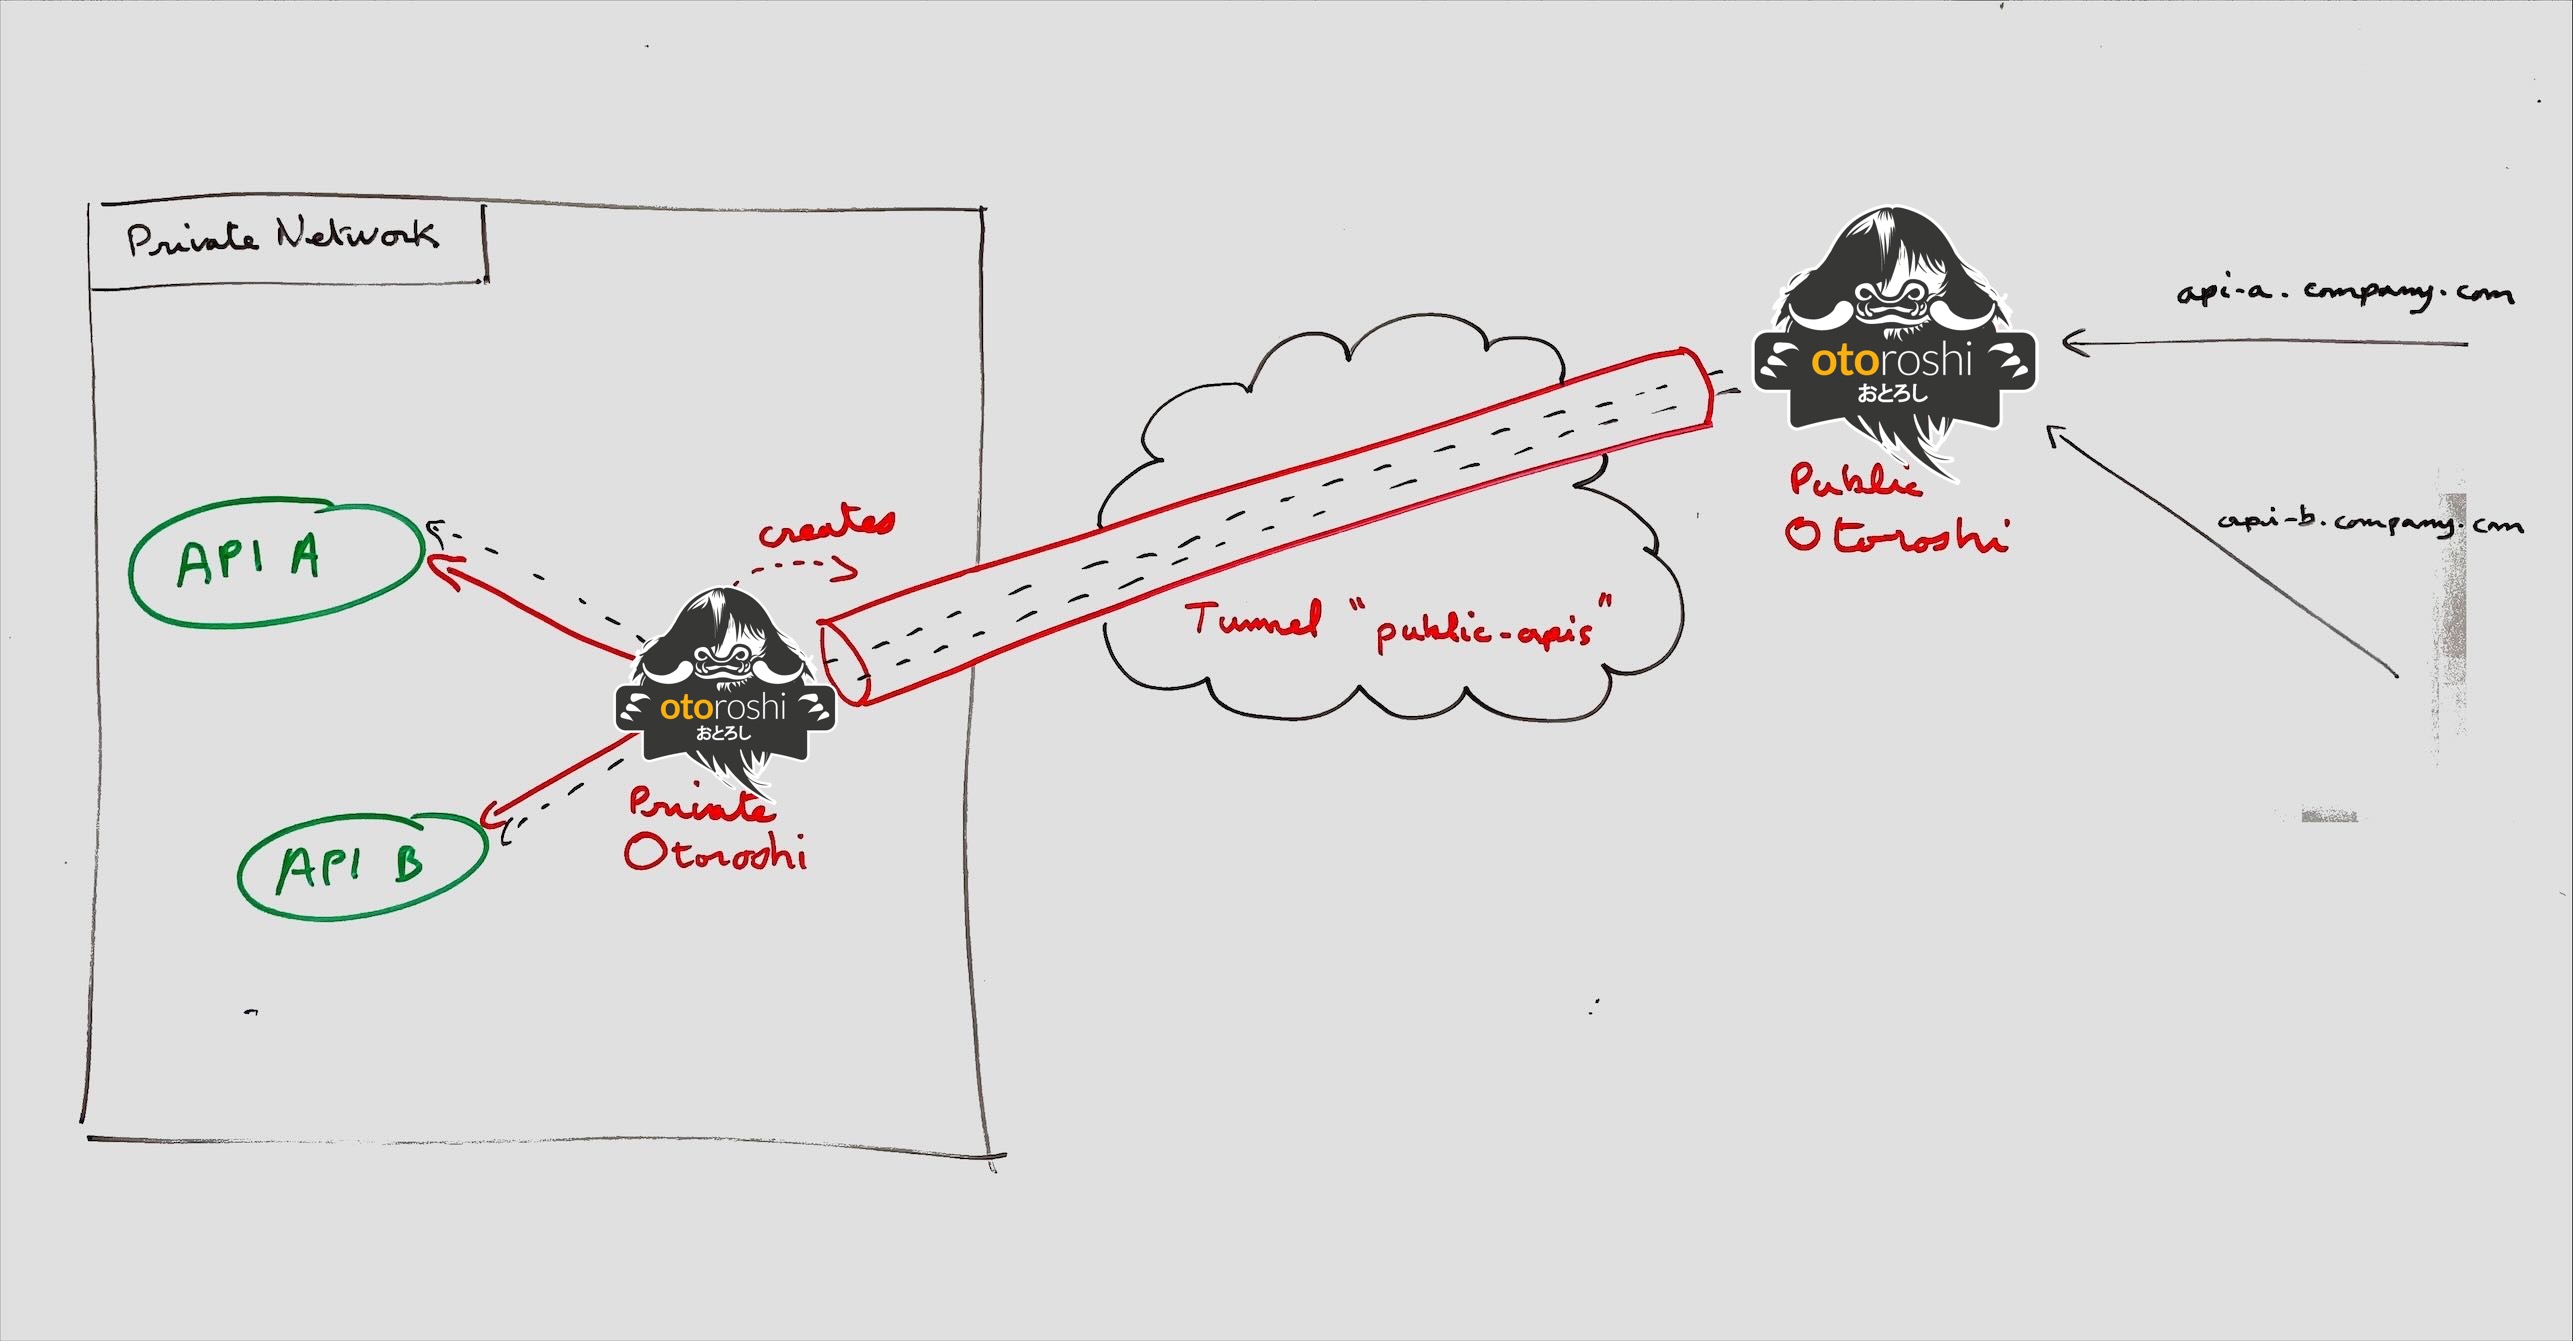 Private Network
API A
API B
creates
otoroshi
おとろし
Private
Otoroshi
Tunnel "public-apis"
otoroshi
おとろし
Public
Otoroshi
api-a.company.com
api-b.company.com